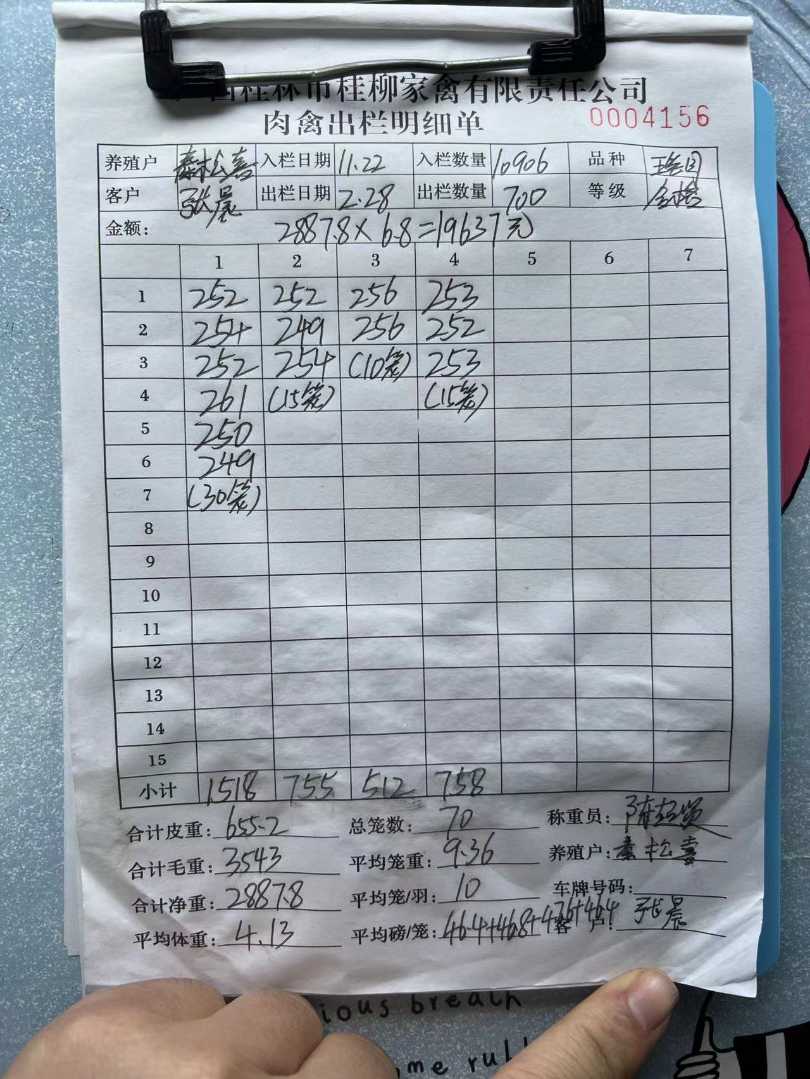 西桂林市桂柳家禽有限责任公司
肉禽出栏明细单 0004156
养殖户 秦松喜 入栏日期 11.22 入栏数量 10906 品种
客户 张晨 出栏日期 2.28 出栏数量 700 等级 合格
金额: 2887.8×6.8=19637元
1 2 3 4 5 6 7
1 252 252 256 253
2 254 249 256 252
3 252 254 (10笼) 253
4 261 (15笼) (15笼)
5 250
6 249
7 (30笼)
8
9
10
11
12
13
14
15
小计 1518 755 512 758
合计皮重: 655.2 总笼数: 70 称重员:
合计毛重: 3543 平均笼重: 9.36 养殖户: 秦松喜
合计净重: 2887.8 平均笼/羽: 10 车牌号码:
平均体重: 4.13 平均磅/笼: 464+468+476+464 客户: 张晨
ious breath
me rul